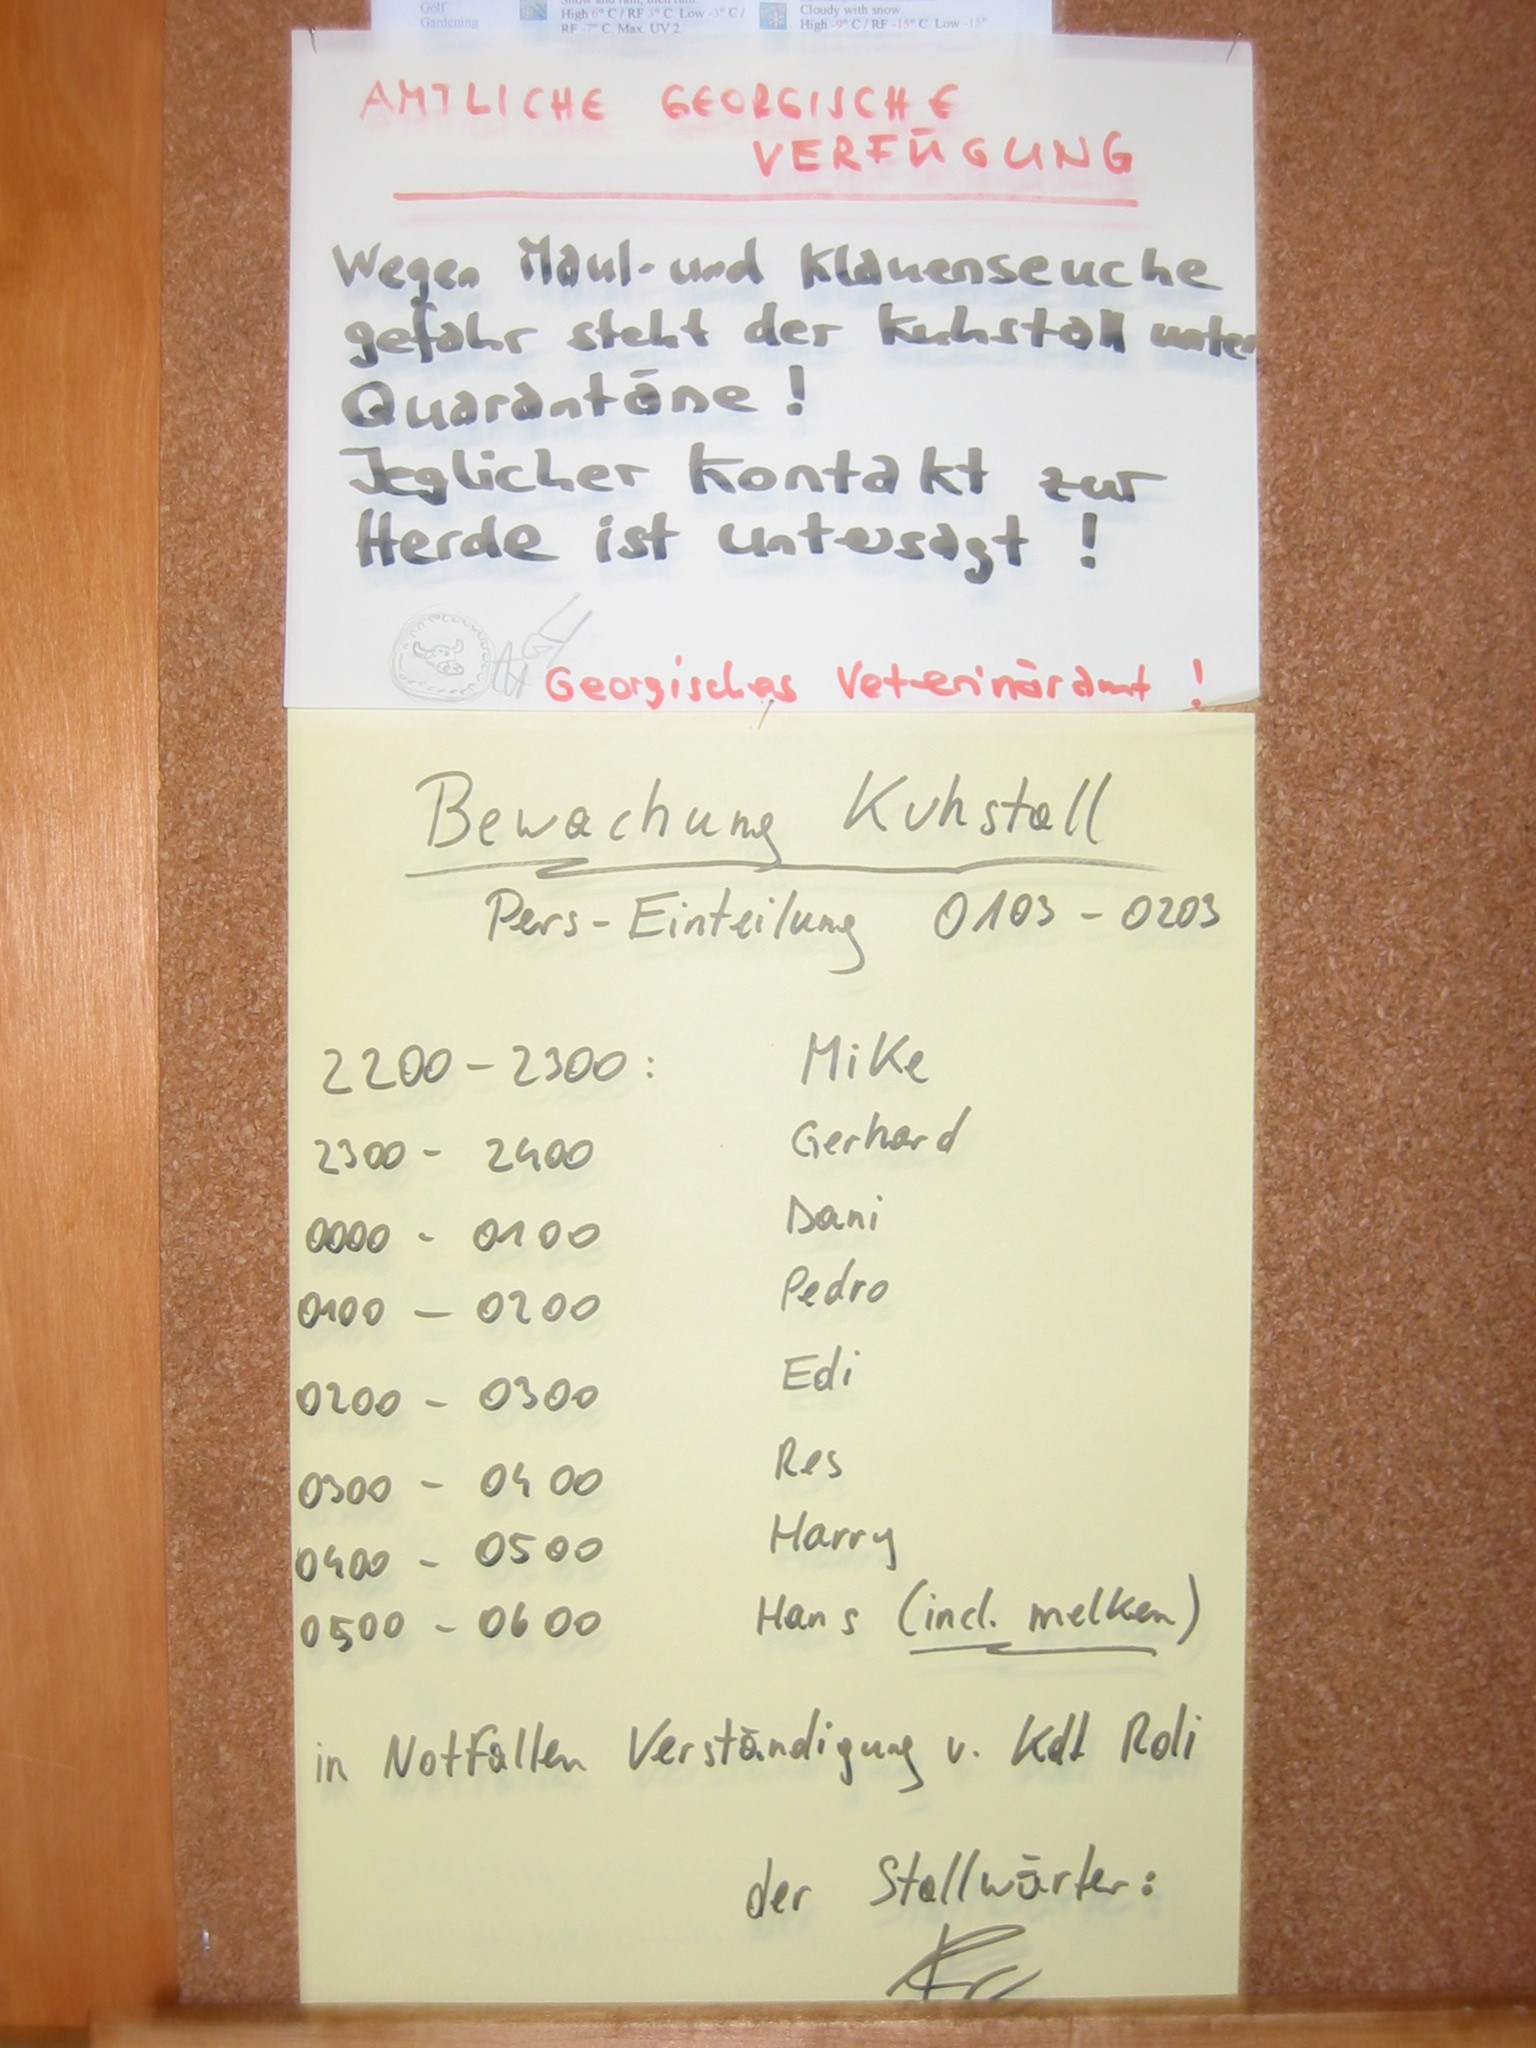 Golf
Gardening
Snow and rain, then rain.
High 6° C / RF 3° C. Low -3° C /
RF -7° C. Max. UV 2.
Cloudy with snow.
High -9° C / RF -15° C. Low -15°
AMTLICHE GEORGISCHE
VERFÜGUNG
Wegen Maul- und Klauenseuche
gefahr steht der Kuhstall unter
Quarantäne !
Jeglicher Kontakt zur
Herde ist untersagt !
Georgisches Veterinäramt !
Bewachung Kuhstall
Pers-Einteilung 0103 - 0203
2200 - 2300 : Mike
2300 - 2400 Gerhard
0000 - 0100 Dani
0100 - 0200 Pedro
0200 - 0300 Edi
0300 - 0400 Res
0400 - 0500 Harry
0500 - 0600 Hans (incl. melken)
in Notfällen Verständigung v. Kdt Roli
der Stallwärter: